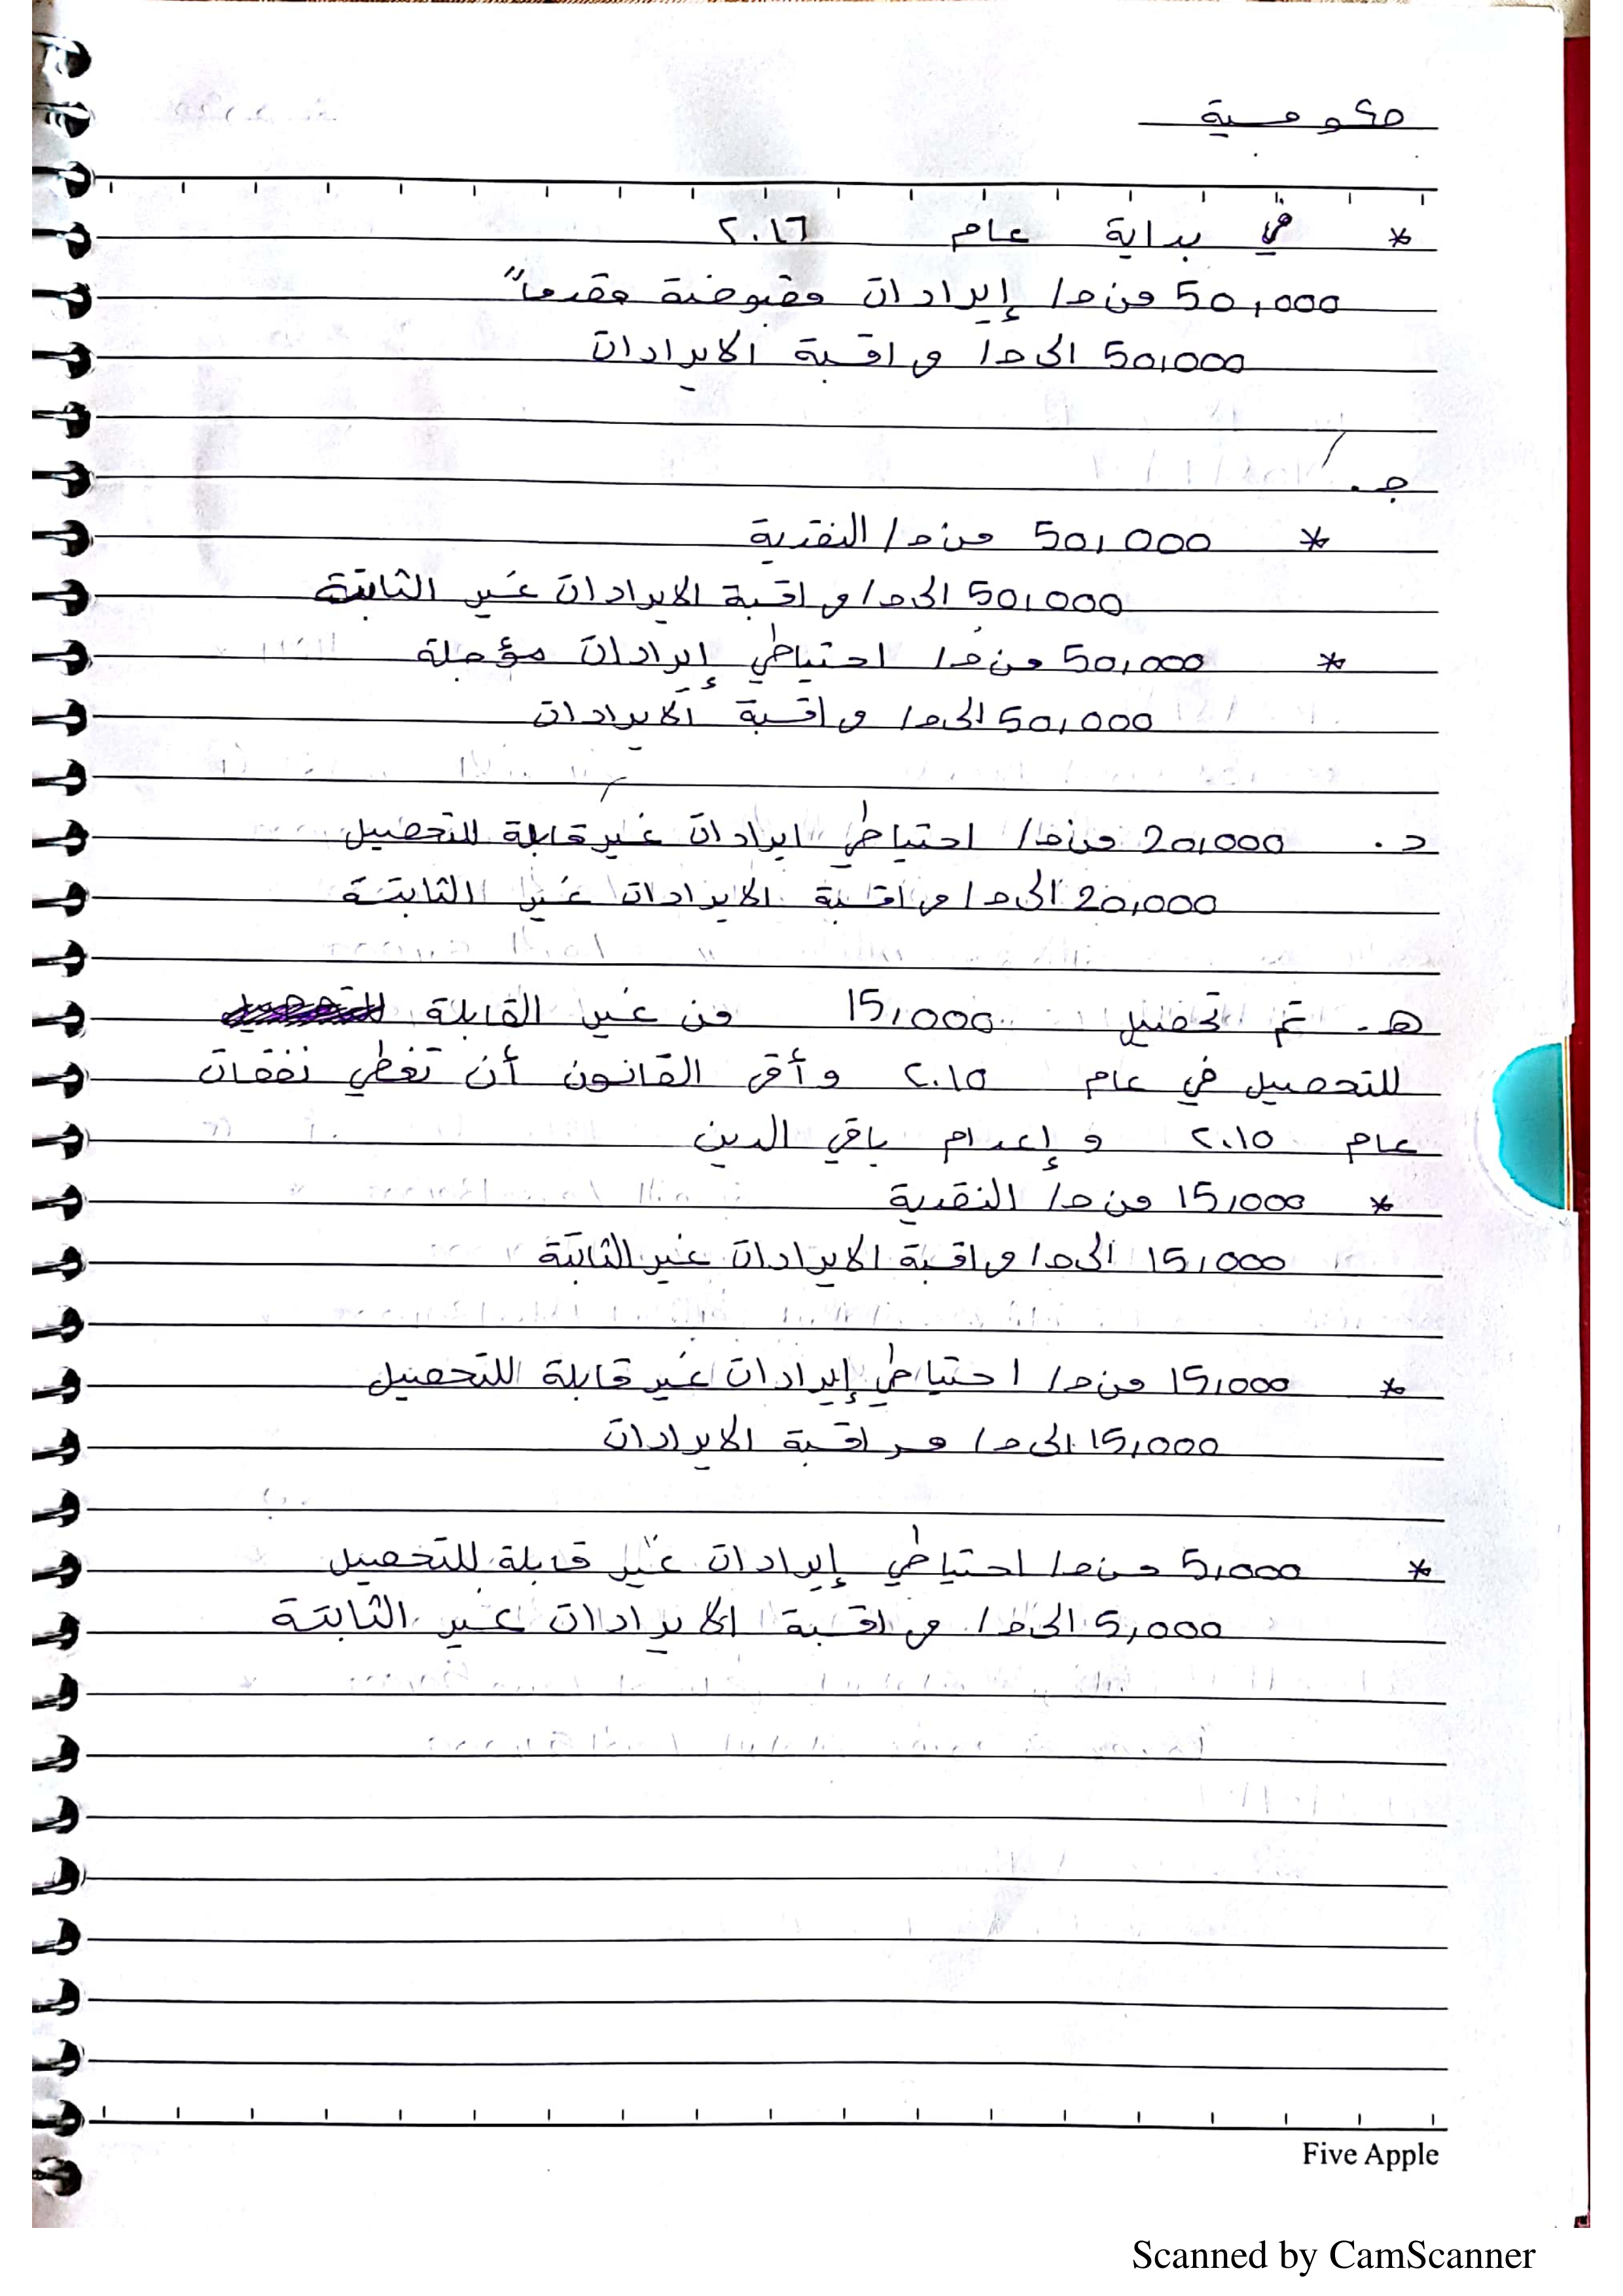 حكومية
* في بداية عام ٢٠١٦
50,000 من ح/ إيرادات مقبوضة مقدماً
50,000 الى ح/ مراقبة الايرادات
ج.
* 50,000 من ح/ النقدية
50,000 الى ح/ مراقبة الايرادات غير الثابتة
* 50,000 من ح/ احتياطي إيرادات مؤجلة
50,000 الى ح/ مراقبة الايرادات
د. 20,000 من ح/ احتياطي ايرادات غير قابلة للتحصيل
20,000 الى ح/ مراقبة الايرادات غير الثابتة
هـ. تم تحصيل 15,000 من غير القابلة
للتحصيل في عام ٢٠١٥ وأقر القانون أن تغطي نفقات
عام ٢٠١٥ و إعدام باقي الدين
* 15,000 من ح/ النقدية
15,000 الى ح/ مراقبة الايرادات غير الثابتة
* 15,000 من ح/ احتياطي إيرادات غير قابلة للتحصيل
15,000 الى ح/ مراقبة الايرادات
* 5,000 من ح/ احتياطي إيرادات غير قابلة للتحصيل
5,000 الى ح/ مراقبة الايرادات غير الثابتة
Five Apple
Scanned by CamScanner